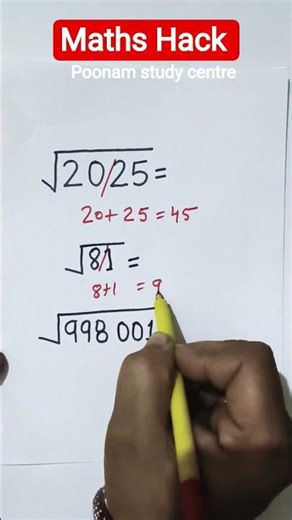 Maths Hack
Poonam study centre
√20/25 =
20+25=45
√8/1 =
8+1 = 9
√998 001